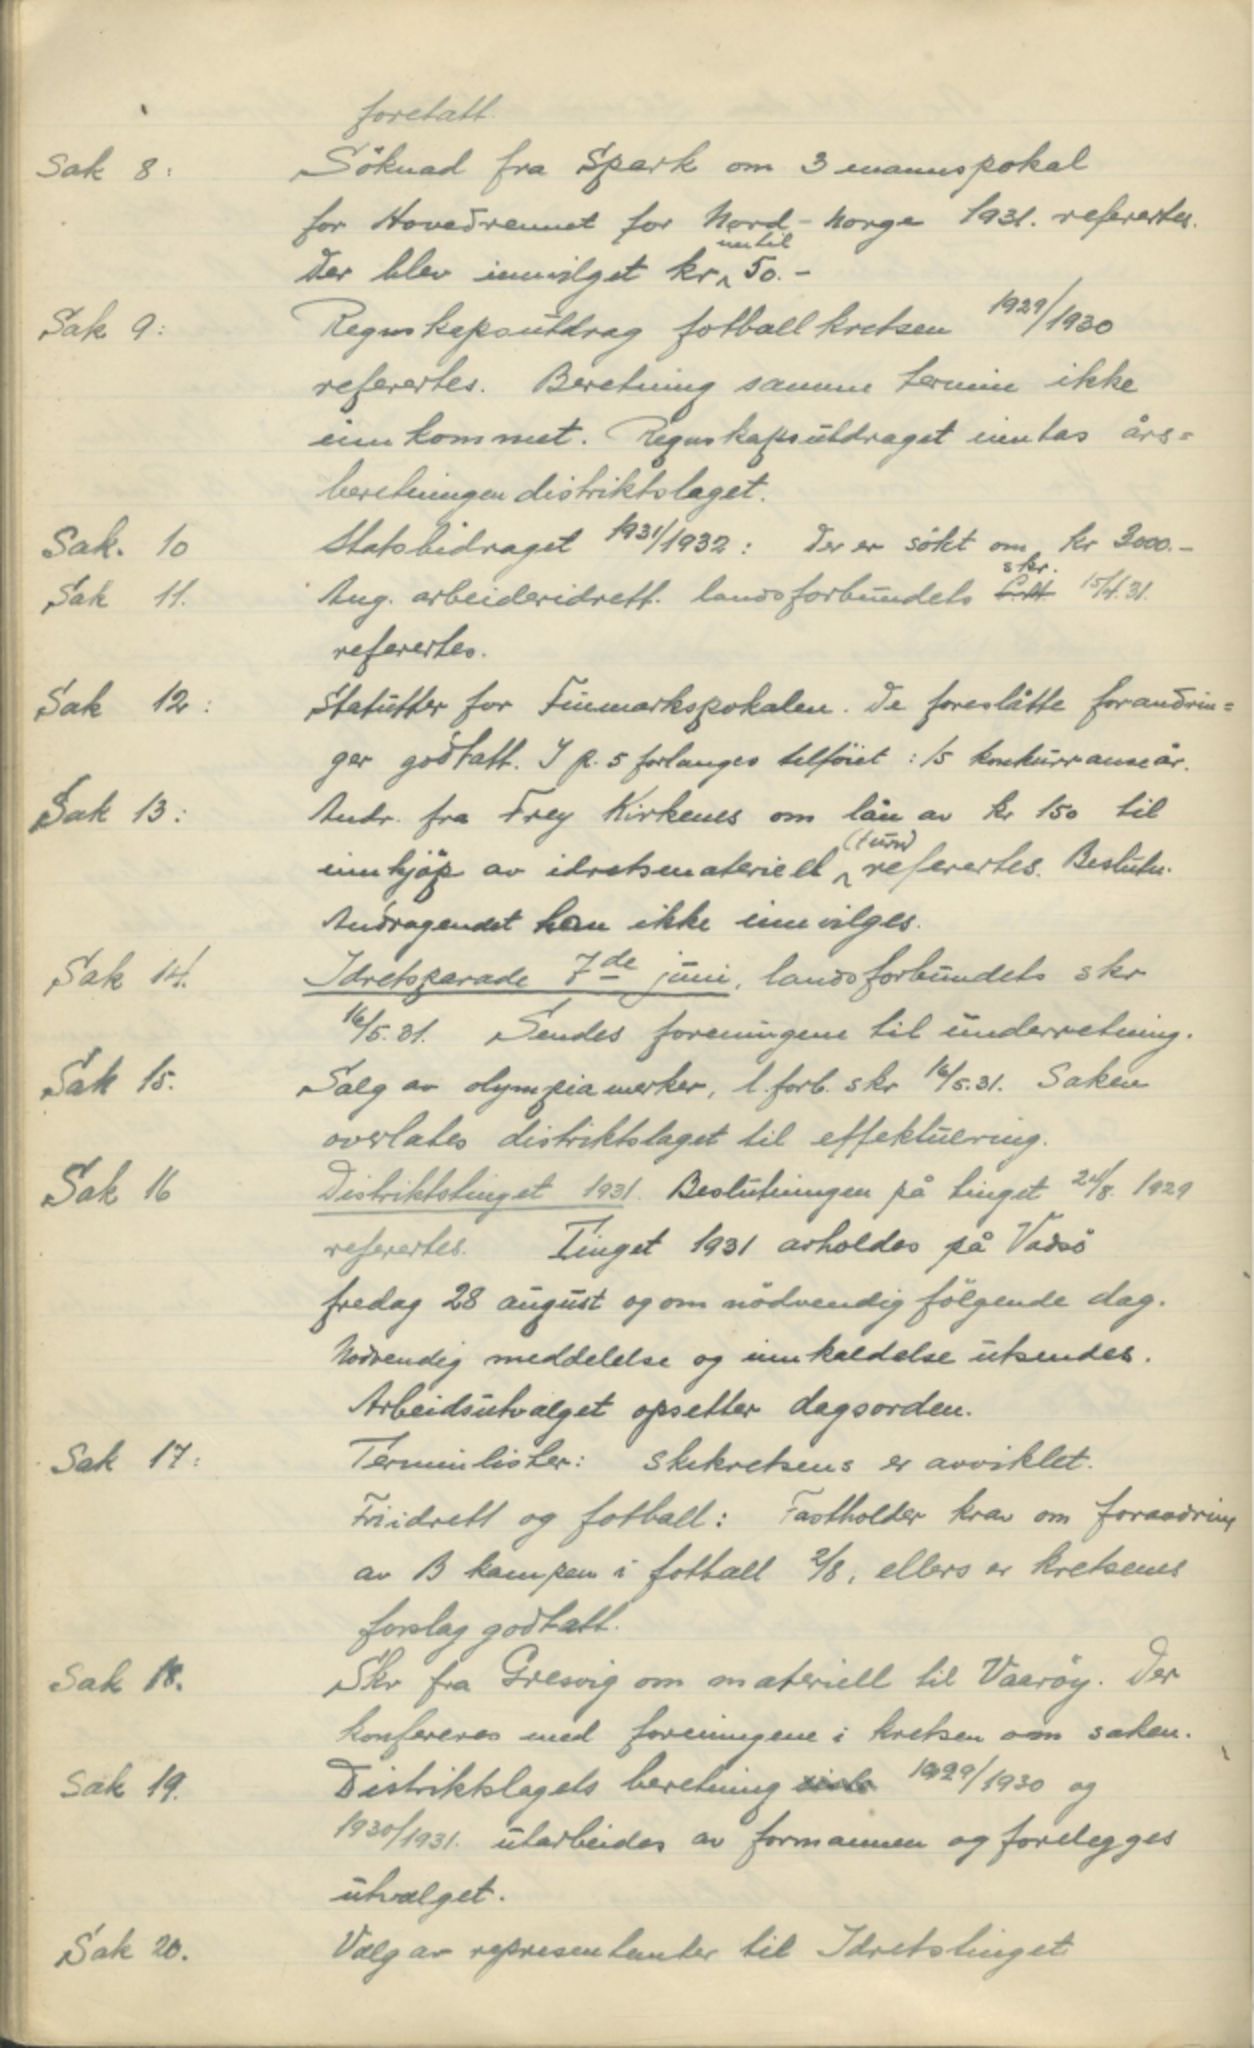 foretatt.
Sak 8: Söknad fra Spark om 3 mannspokal
for Hovedrennet for Nord-Norge 1931. refertes.
Der blev innvilget kr. inntil 50.-
Sak 9: Regnskapsutdrag fotballkretsen 1929/1930
refertes. Beretning samme termin ikke
innkommet. Regnskapsutdraget inntas års=
beretningen distriktslaget.
Sak. 10 Statsbidraget 1931/1932: Der er sökt om kr 3000.-
Sak 11. Ang. arbeideridrett. landsforbundets skr. 15/4.31.
refertes.
Sak 12: Statutter for Finmarkspokalen. De foreslåtte forandrin=
ger godtatt. I p. 5 forlanges tilföiet: 15 konkurranseår.
Sak 13: Andr. fra Frey Kirkenes om lån av kr 150 til
innkjöp av idretsmateriell (turn) referertes. Beslutn.
Andragendet kan ikke innvilges.
Sak 14. Idretsparade 7de juni, landsforbundets skr
16/5.31. Sendes foreningene til underretning.
Sak 15. Salg av olympiamerker, l.forb. skr 16/5.31. Saken
overlates distriktslaget til effektuering.
Sak 16 Distriktstinget 1931. Beslutningen på tinget 24/8. 1929
referertes. Tinget 1931 avholdes på Vadsö
fredag 28 august og om nödvendig fölgende dag.
Nödvendig meddelelse og innkaldelse utsendes.
Arbeidsutvalget opsetter dagsorden.
Sak 17: Terminlister: Skikretsens er avviklet.
Friidrett og fotball: Fastholder krav om forandring
av B kampen i fotball 2/8, ellers er kretsenes
forslag godtatt.
Sak 18. Skr fra Gresvig om materiell til Vaeröy. Der
konfereres med foreningene i kretsen om saken.
Sak 19. Distriktslagets beretning 1929/1930 og
1930/1931. utarbeides av formannen og forelegges
utvalget.
Sak 20. Valg av representanter til Idretstinget